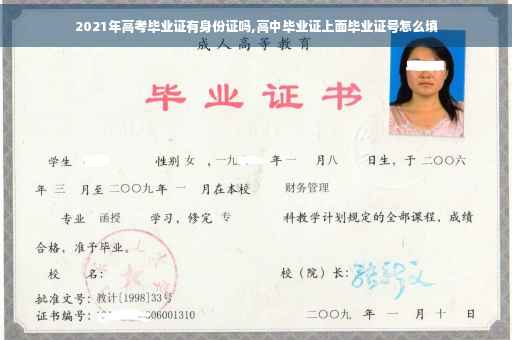 2021年高考毕业证有身份证吗,高中毕业证上面毕业证号怎么填
成人高等教育
毕业证书
学生 性别 女 ，一九 年 一 月八 日生，于 二〇〇六
年 三 月至 二〇〇九 年 一 月在本校 财务管理
专业 函授 学习，修完 专 科教学计划规定的全部课程，成绩
合格，准予毕业。
校 名： 校（院）长：
批准文号：教计[1998]33号
证书编号： 06001310 二〇〇九 年 一 月 十 日